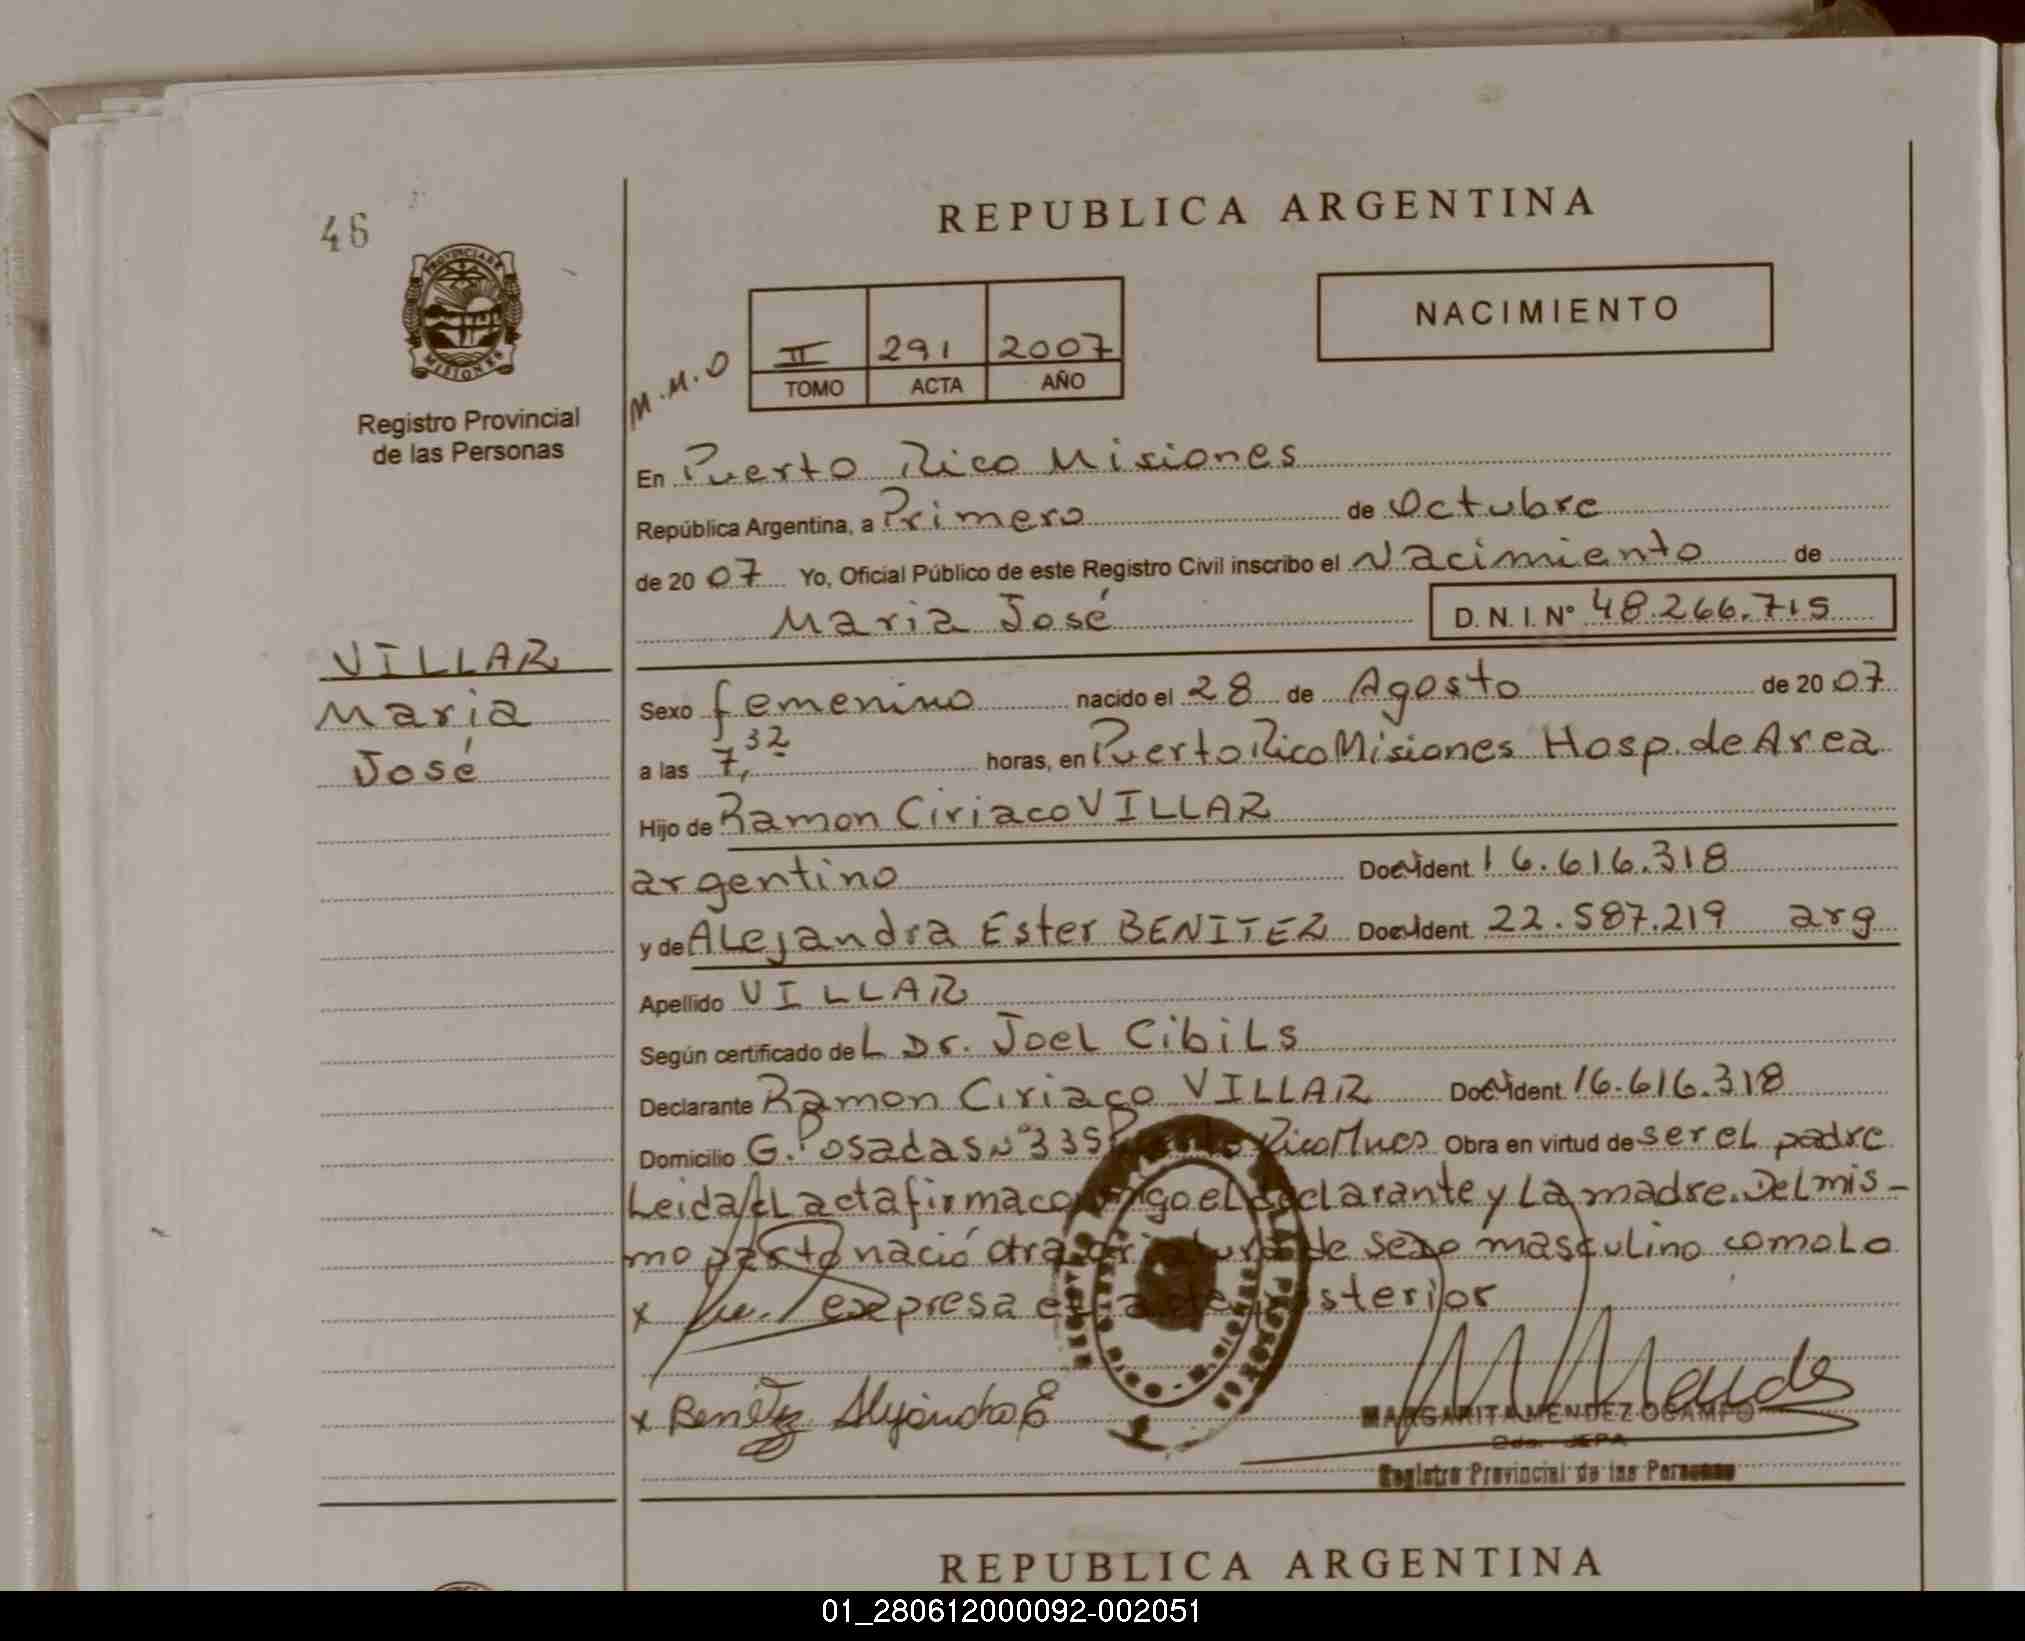 46
REPUBLICA ARGENTINA
PROVINCIA DE
MISIONES
Registro Provincial
de las Personas
M.M.O
II 291 2007
TOMO ACTA AÑO
NACIMIENTO
En Puerto Rico Misiones
República Argentina, a Primero de Octubre
de 2007 Yo, Oficial Público de este Registro Civil inscribo el Nacimiento de
Maria José D. N. I. N° 48.266.715
VILLAR
Maria
José
Sexo femenino nacido el 28 de Agosto de 2007
a las 7,32 horas, en Puerto Rico Misiones Hosp. de Area
Hijo de Ramon Ciriaco VILLAR
argentino Doc. Ident. 16.616.318
y de Alejandra Ester BENITEZ Doc. Ident. 22.587.219 arg
Apellido VILLAR
Según certificado del Dr. Joel Cibils
Declarante Ramon Ciriaco VILLAR Doc. Ident. 16.616.318
Domicilio G. Posadas N° 335 Puerto Rico Mnes Obra en virtud de ser el padre
Leida el acta firma conmigo el declarante y la madre. Del mis-
mo parto nació otra criatura de sexo masculino como lo
x expresa el acta posterior
x Benitez Alejandra E
M Mendez
MARGARITA MENDEZ OCAMPO
Registro Provincial de las Personas
REPUBLICA ARGENTINA
01_280612000092-002051